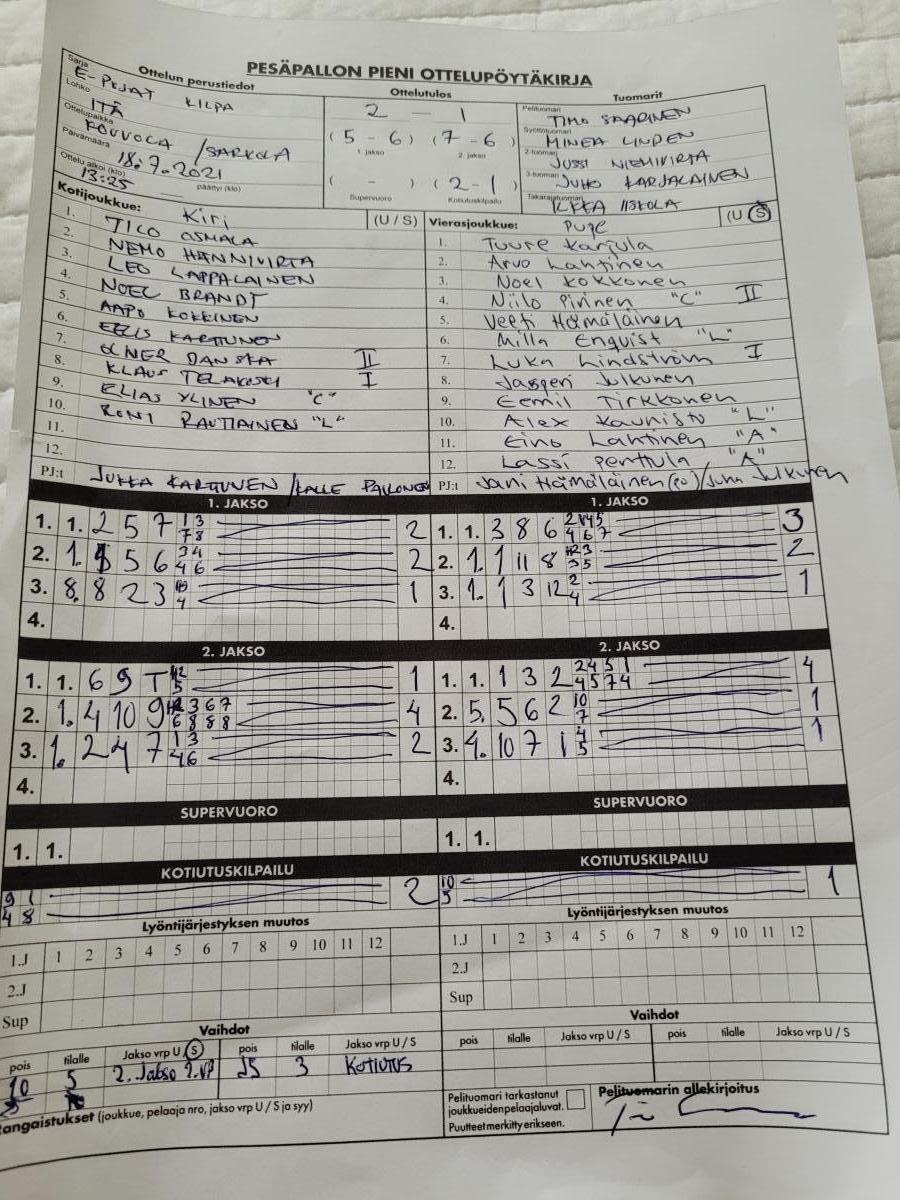 PESÄPALLON PIENI OTTELUPÖYTÄKIRJA
Ottelun perustiedot
Ottelutulos
Tuomarit
Sarja
E-POJAT KILPA
Lohko
ITÄ
Ottelupaikka
KOUVOLA / SARKOLA
Päivämäärä
18.7.2021
Ottelu alkoi (klo)
13:25
päättyi (klo)
2 - 1
(5 - 6) (7 - 6)
1. jakso 2. jakso
( - ) (2 - 1)
Supervuoro Kotiutuskilpailu
Pelituomari
TIMO SAARINEN
Syöttötuomari
MINEA LINDEN
2-tuomari
JUSSI NIEMIVIRTA
3-tuomari
JUHO KARJALAINEN
Takarajatuomari
ILKKA IISKOLA
Kotijoukkue: Kiri (U / S)
1. TICO OSMALA
2. NEMO HANNIVIRTA
3. LEO LAPPALAINEN
4. NOEL BRANDT
5. AAPO KOKKINEN
6. EELIS KARTUNEN
7. OLIVER DANSKA II
8. KLAUS TELAKOSKI I
9. ELIAS YLINEN "C"
10. RONI RAUTIAINEN "L"
11.
12.
PJ:t JUKKA KARTUNEN / KALLE PALLONEN
Vierasjoukkue: Puge (U / S)
1. Tuure Karjula
2. Arvo Lahtinen
3. Noel Kokkonen
4. Niilo Pirinen "C" II
5. Veeti Hämäläinen
6. Milla Enquist "L"
7. Luka Lindström I
8. Jasperi Julkunen
9. Eemil Tirkkonen
10. Alex Kaunisto "L"
11. Eino Lahtinen "A"
12. Lassi Perttula "A"
PJ:t Jani Hämäläinen (po) / Juha Julkunen
1. JAKSO
1. 1. 2 5 7 1 3 2
7 8
2. 1. 5 6 3 4 2
4 6
3. 8. 8 2 3 10 1
4
4.
1. JAKSO
1. 1. 3 8 6 3
4 6 7
2. 1. 1 11 8 2
3 5
3. 1. 1 3 12 2 1
4
4.
2. JAKSO
1. 1. 6 9 T 1
5
2. 1. 4 10 9 3 6 7 4
6 8 8 8
3. 1. 2 4 7 1 3 2
4 6
4.
2. JAKSO
1. 1. 1 3 2 2 4 5 1 4
4 5 7 4
2. 5. 5 6 2 10 1
7
3. 4. 10 7 1 4 1
5
4.
SUPERVUORO
1. 1.
SUPERVUORO
1. 1.
KOTIUTUSKILPAILU
9 1 2
4 8
KOTIUTUSKILPAILU
10 1
5
Lyöntijärjestyksen muutos
1.J 1 2 3 4 5 6 7 8 9 10 11 12
2.J
Sup
Lyöntijärjestyksen muutos
1.J 1 2 3 4 5 6 7 8 9 10 11 12
2.J
Sup
Vaihdot
pois tilalle Jakso vrp U / S pois tilalle Jakso vrp U / S
10 5 2. Jakso 2.VP 3 KOTIUTUS
Vaihdot
pois tilalle Jakso vrp U / S pois tilalle Jakso vrp U / S
angaistukset (joukkue, pelaaja nro, jakso vrp U / S ja syy)
Pelituomari tarkastanut
joukkueidenpelaajaluvat.
Puutteet merkitty erikseen.
Pelituomarin allekirjoitus